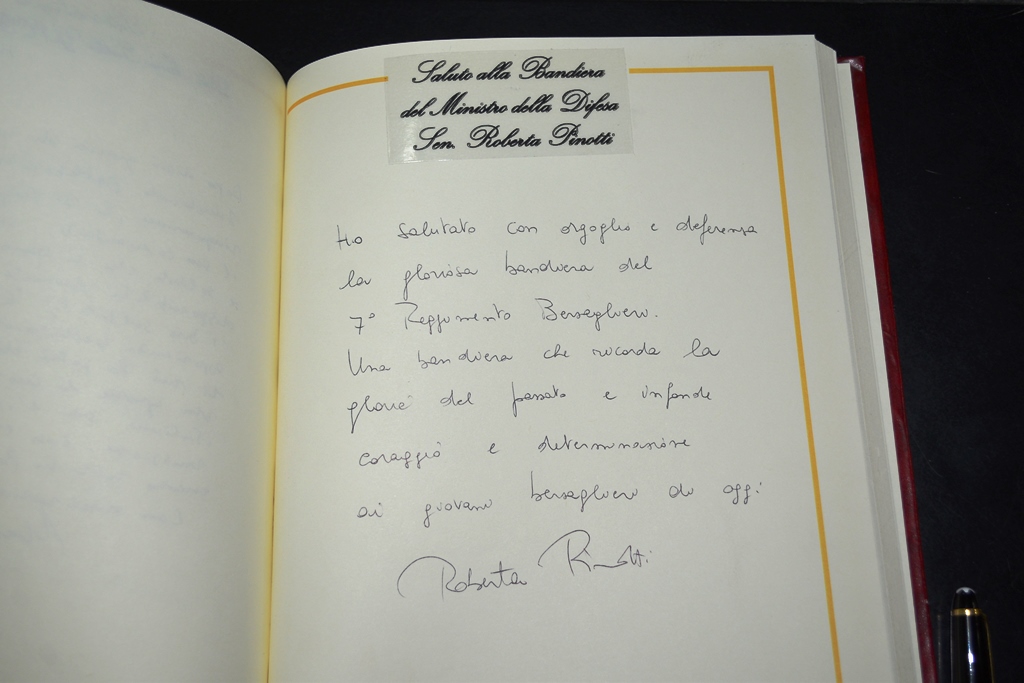 Saluto alla Bandiera
del Ministro della Difesa
Sen. Roberta Pinotti
Ho salutato con orgoglio e deferenza
la gloriosa bandiera del
7° Reggimento Bersaglieri.
Una bandiera che ricorda la
glorie del passato e infonde
coraggio e determinazione
ai giovani bersaglieri di oggi
Roberta Pinotti